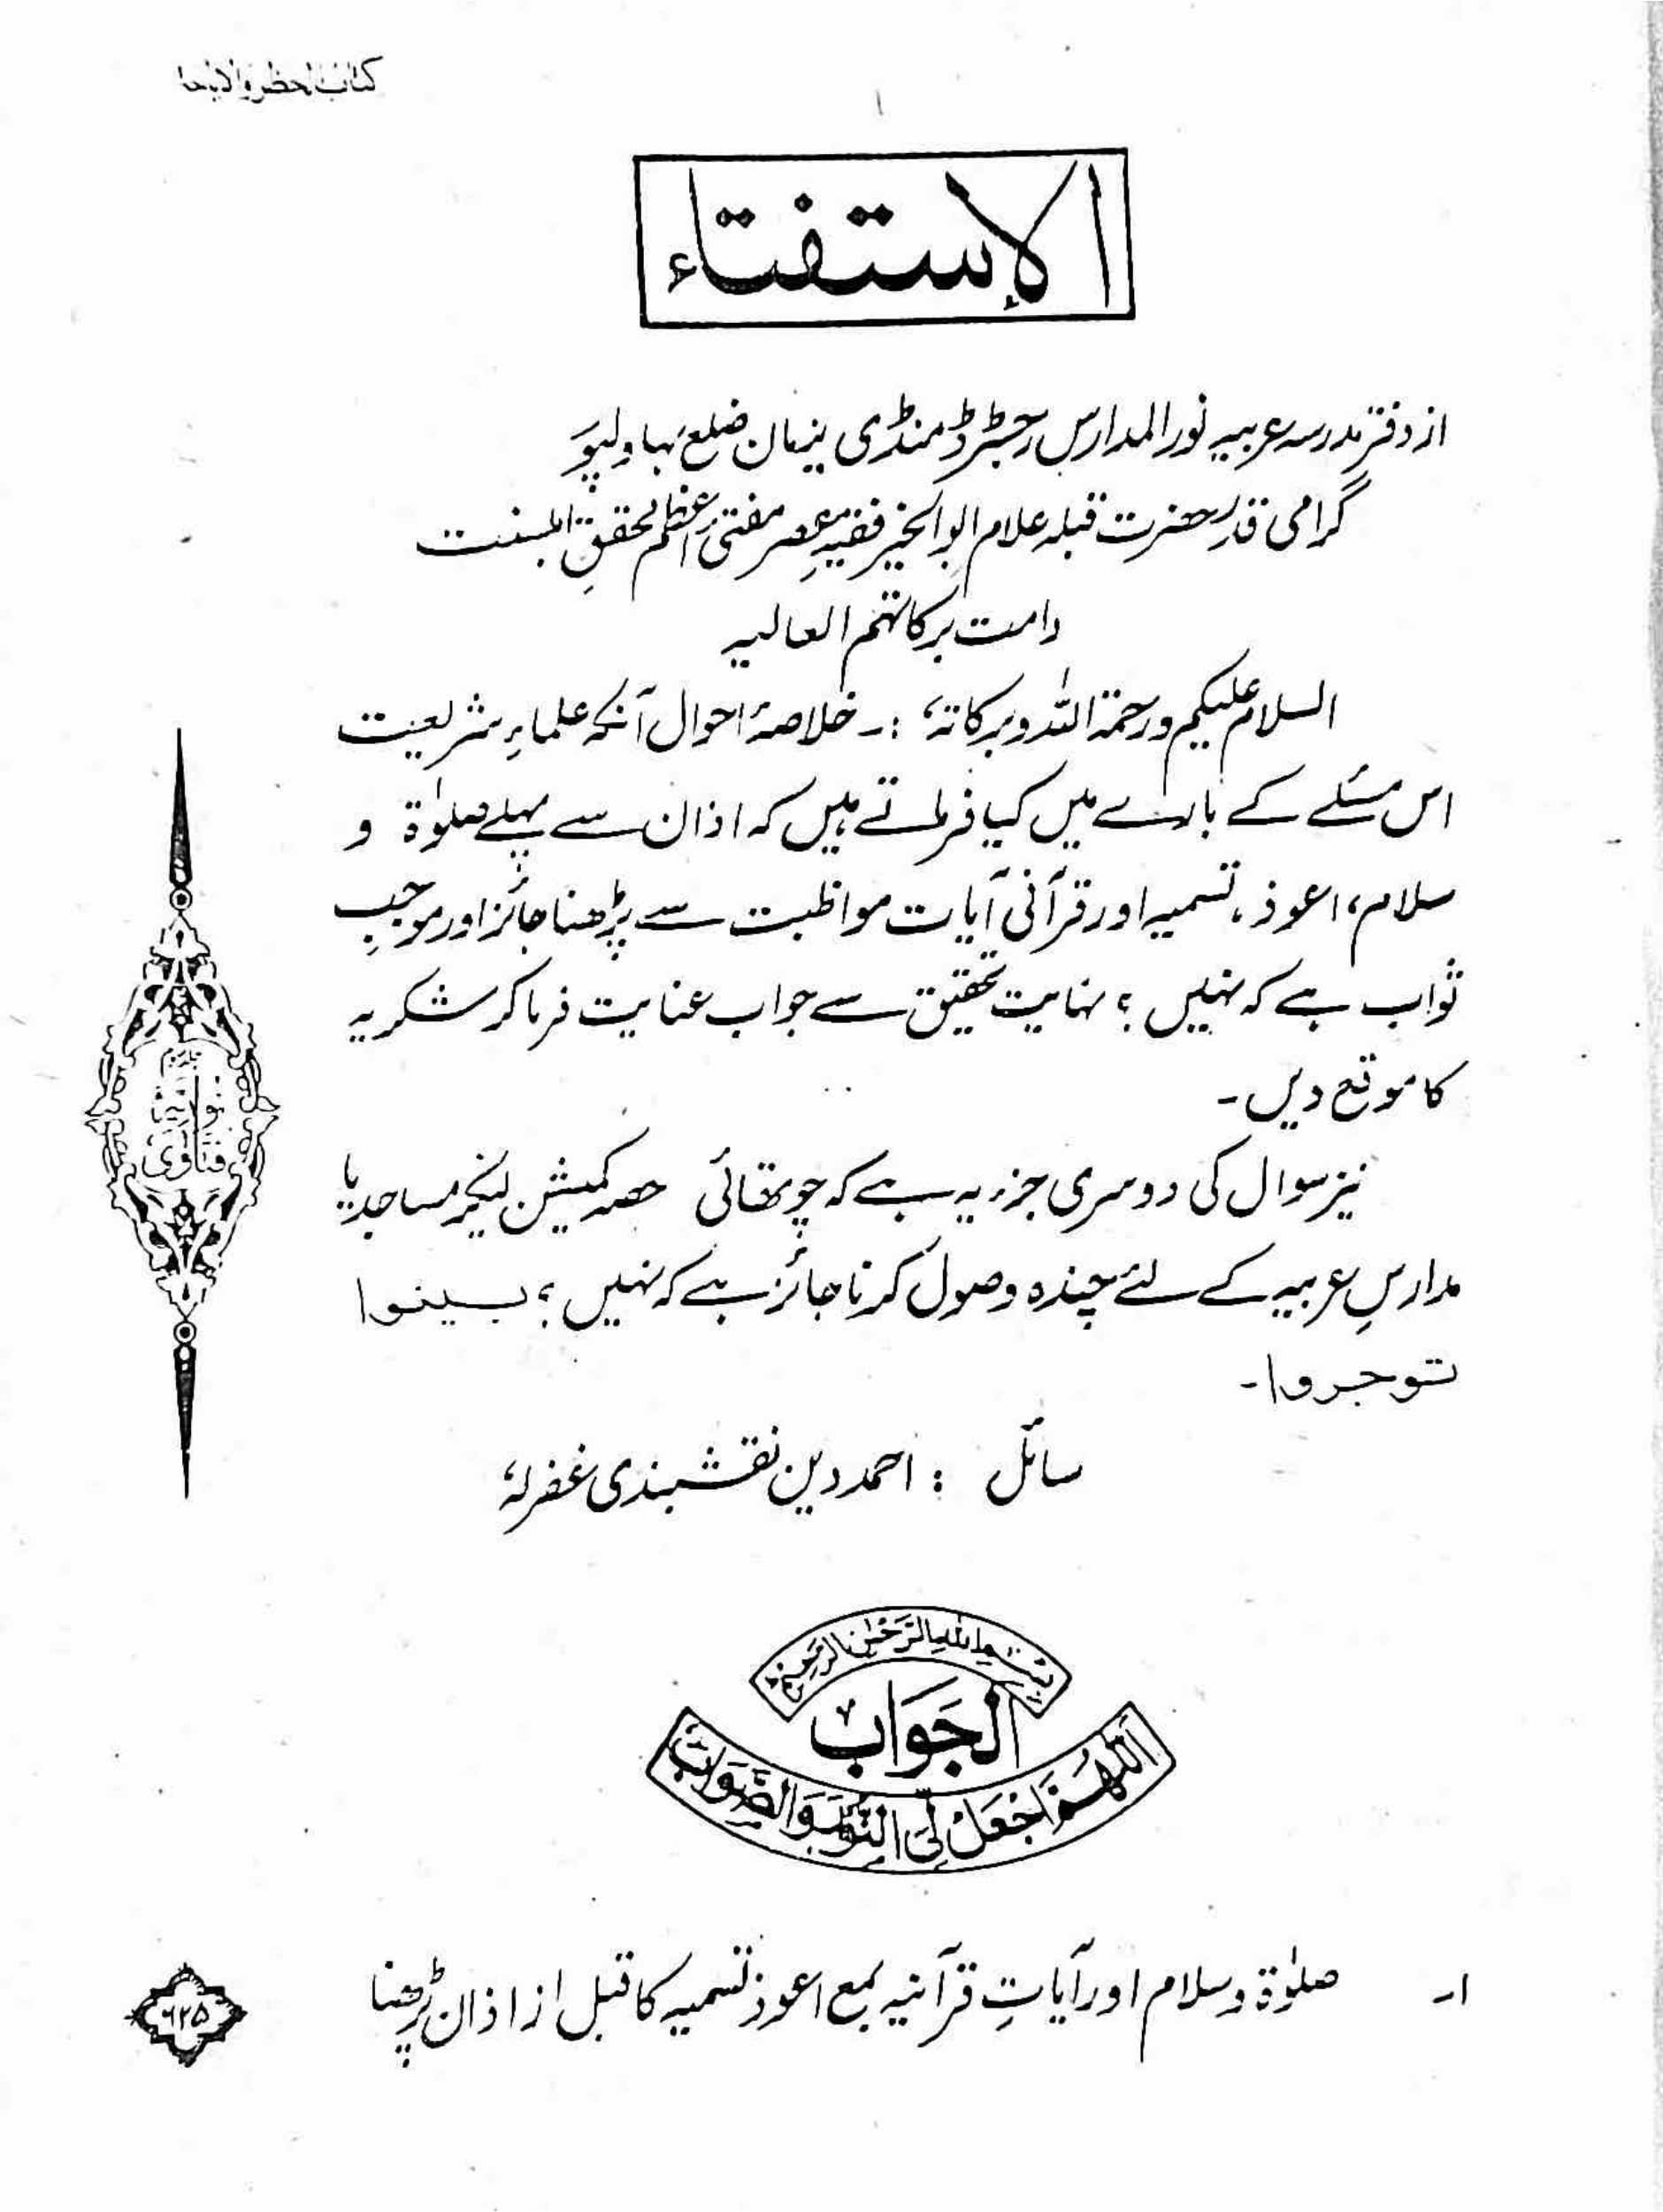 کتاب الحظر والاباحۃ
الإستفتاء
از دفتر مدرسہ عربیہ نور المدارس رجسٹرڈ منڈی یزمان ضلع بہاولپور
گرامی قدر حضرت قبلہ علام ابو الخیر فقیہِ عصر مفتیٔ اعظم محققِ اہلسنت
دامت برکاتہم العالیہ
السلام علیکم ورحمۃ اللہ وبرکاتہٗ :۔ خلاصۂ احوال آنکہ علماءِ شریعت
اس مسئلے کے بارے میں کیا فرماتے ہیں کہ اذان سے پہلے صلوٰۃ و
سلام، اعوذ، تسمیہ اور قرآنی آیات مواظبت سے پڑھنا جائز اور موجبِ
ثواب ہے کہ نہیں؟ نہایت تحقیق سے جواب عنایت فرما کر شکریہ
کا موقع دیں۔
نیز سوال کی دوسری جزء یہ ہے کہ چوتھائی حصہ کمیشن لیکر مساجد یا
مدارسِ عربیہ کے لئے چندہ وصول کرنا جائز ہے کہ نہیں؟ بینوا
توجروا۔
سائل : احمد دین نقشبندی غفرلہٗ
فتاوی نوریہ
بسم اللہ الرحمن الرحیم
الجَوَاب
اَللّٰهُمَّ اجْعَلْ لِّیَ النُّوْرَ وَالصَّوَابَ
۱۔ صلوٰۃ و سلام اور آیاتِ قرآنیہ بمع اعوذ تسمیہ کا قبل از اذان پڑھنا
۶۲۵